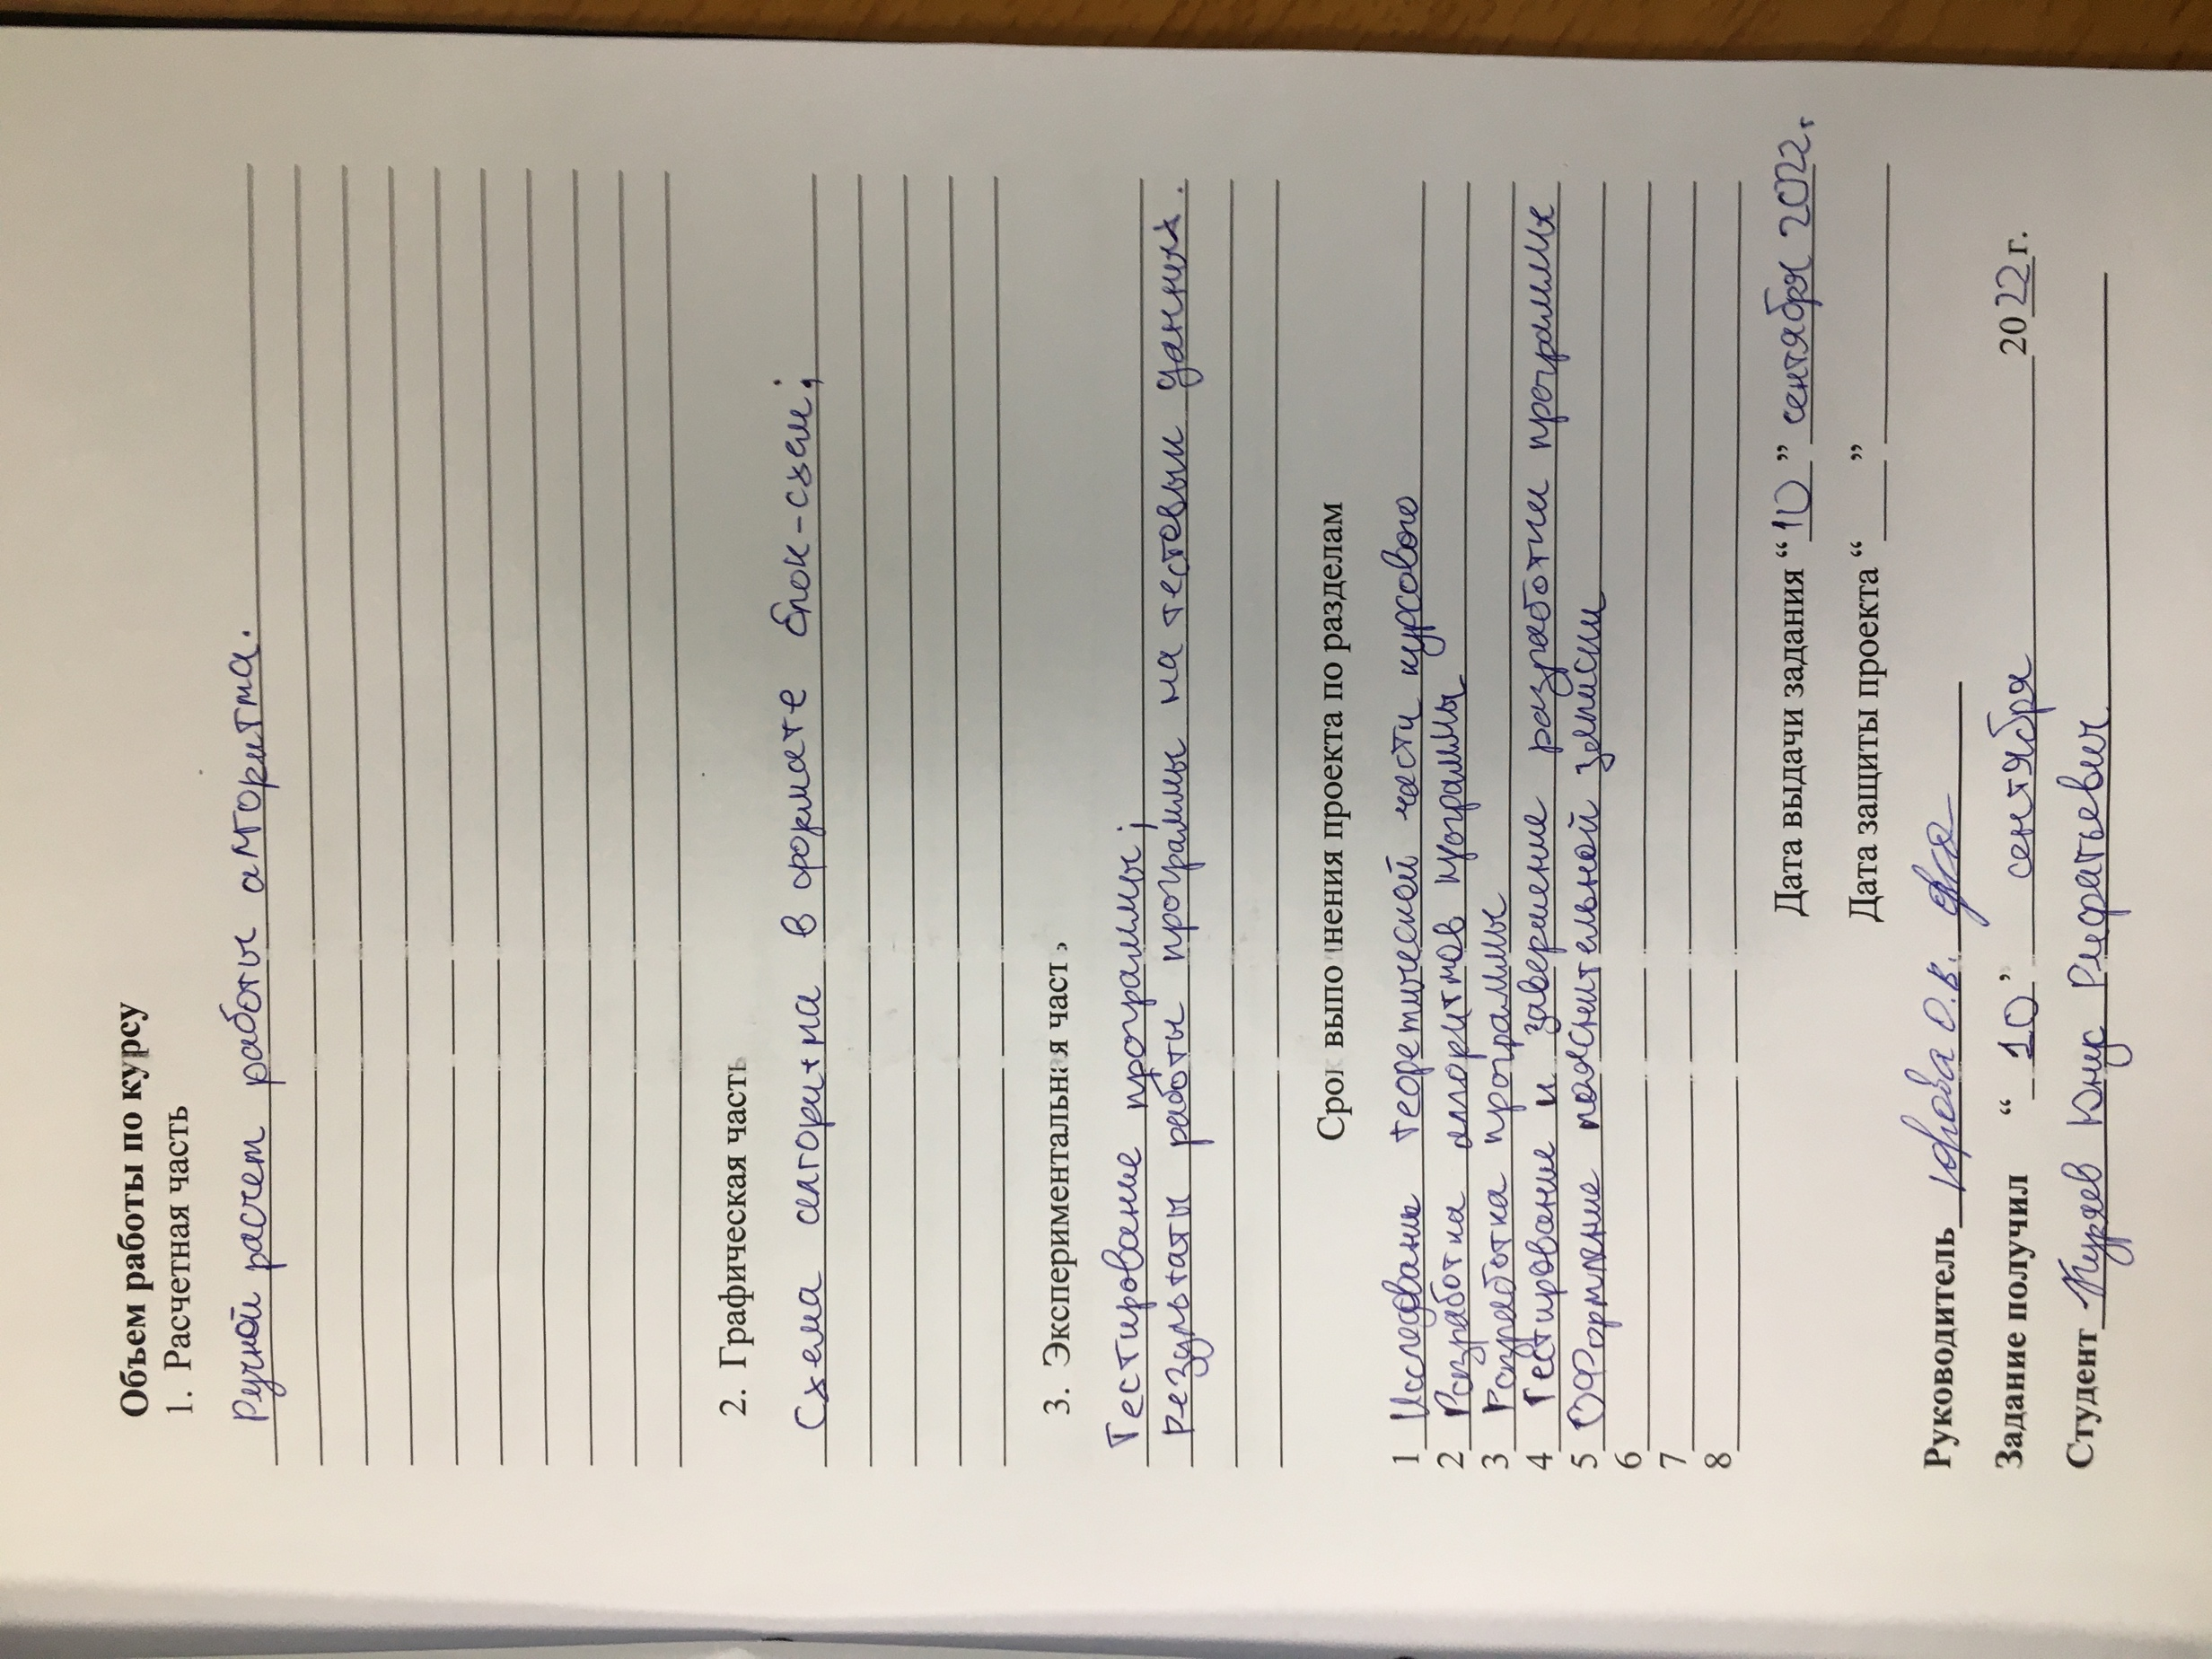 Объем работы по курсу
1. Расчетная часть
Ручной расчет работы алгоритма.
2. Графическая часть
Схема алгоритма в формате блок-схем;
3. Экспериментальная часть
Тестирование программы;
Результаты работы программы на тестовых данных.
Срок выполнения проекта по разделам
1 Исследование теоретической части курсового
2 Разработка алгоритмов программы
3 Разработка программы
4 Тестирование и завершение разработки программы
5 Оформление пояснительной записки
6
7
8
Дата выдачи задания “ 10 ” сентября 2022 г
Дата защиты проекта “ ”
Руководитель О.В.
Задание получил “ 10 ” сентября 2022 г.
Студент Юнус Рифатьевич